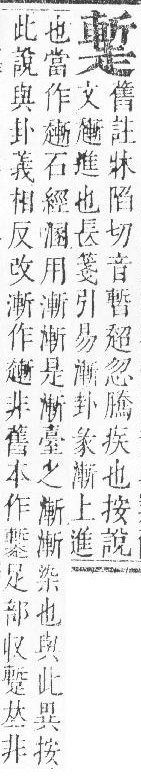 舊註牀陷切音暫超忽騰疾也按說
文𧽯進也長箋引易漸卦彖漸上進
也當作𧽯石經溷用漸漸是漸臺之漸漸染也與此異按
此說與卦義相反改漸作𧽯非舊本作足部收蹔𠀤非